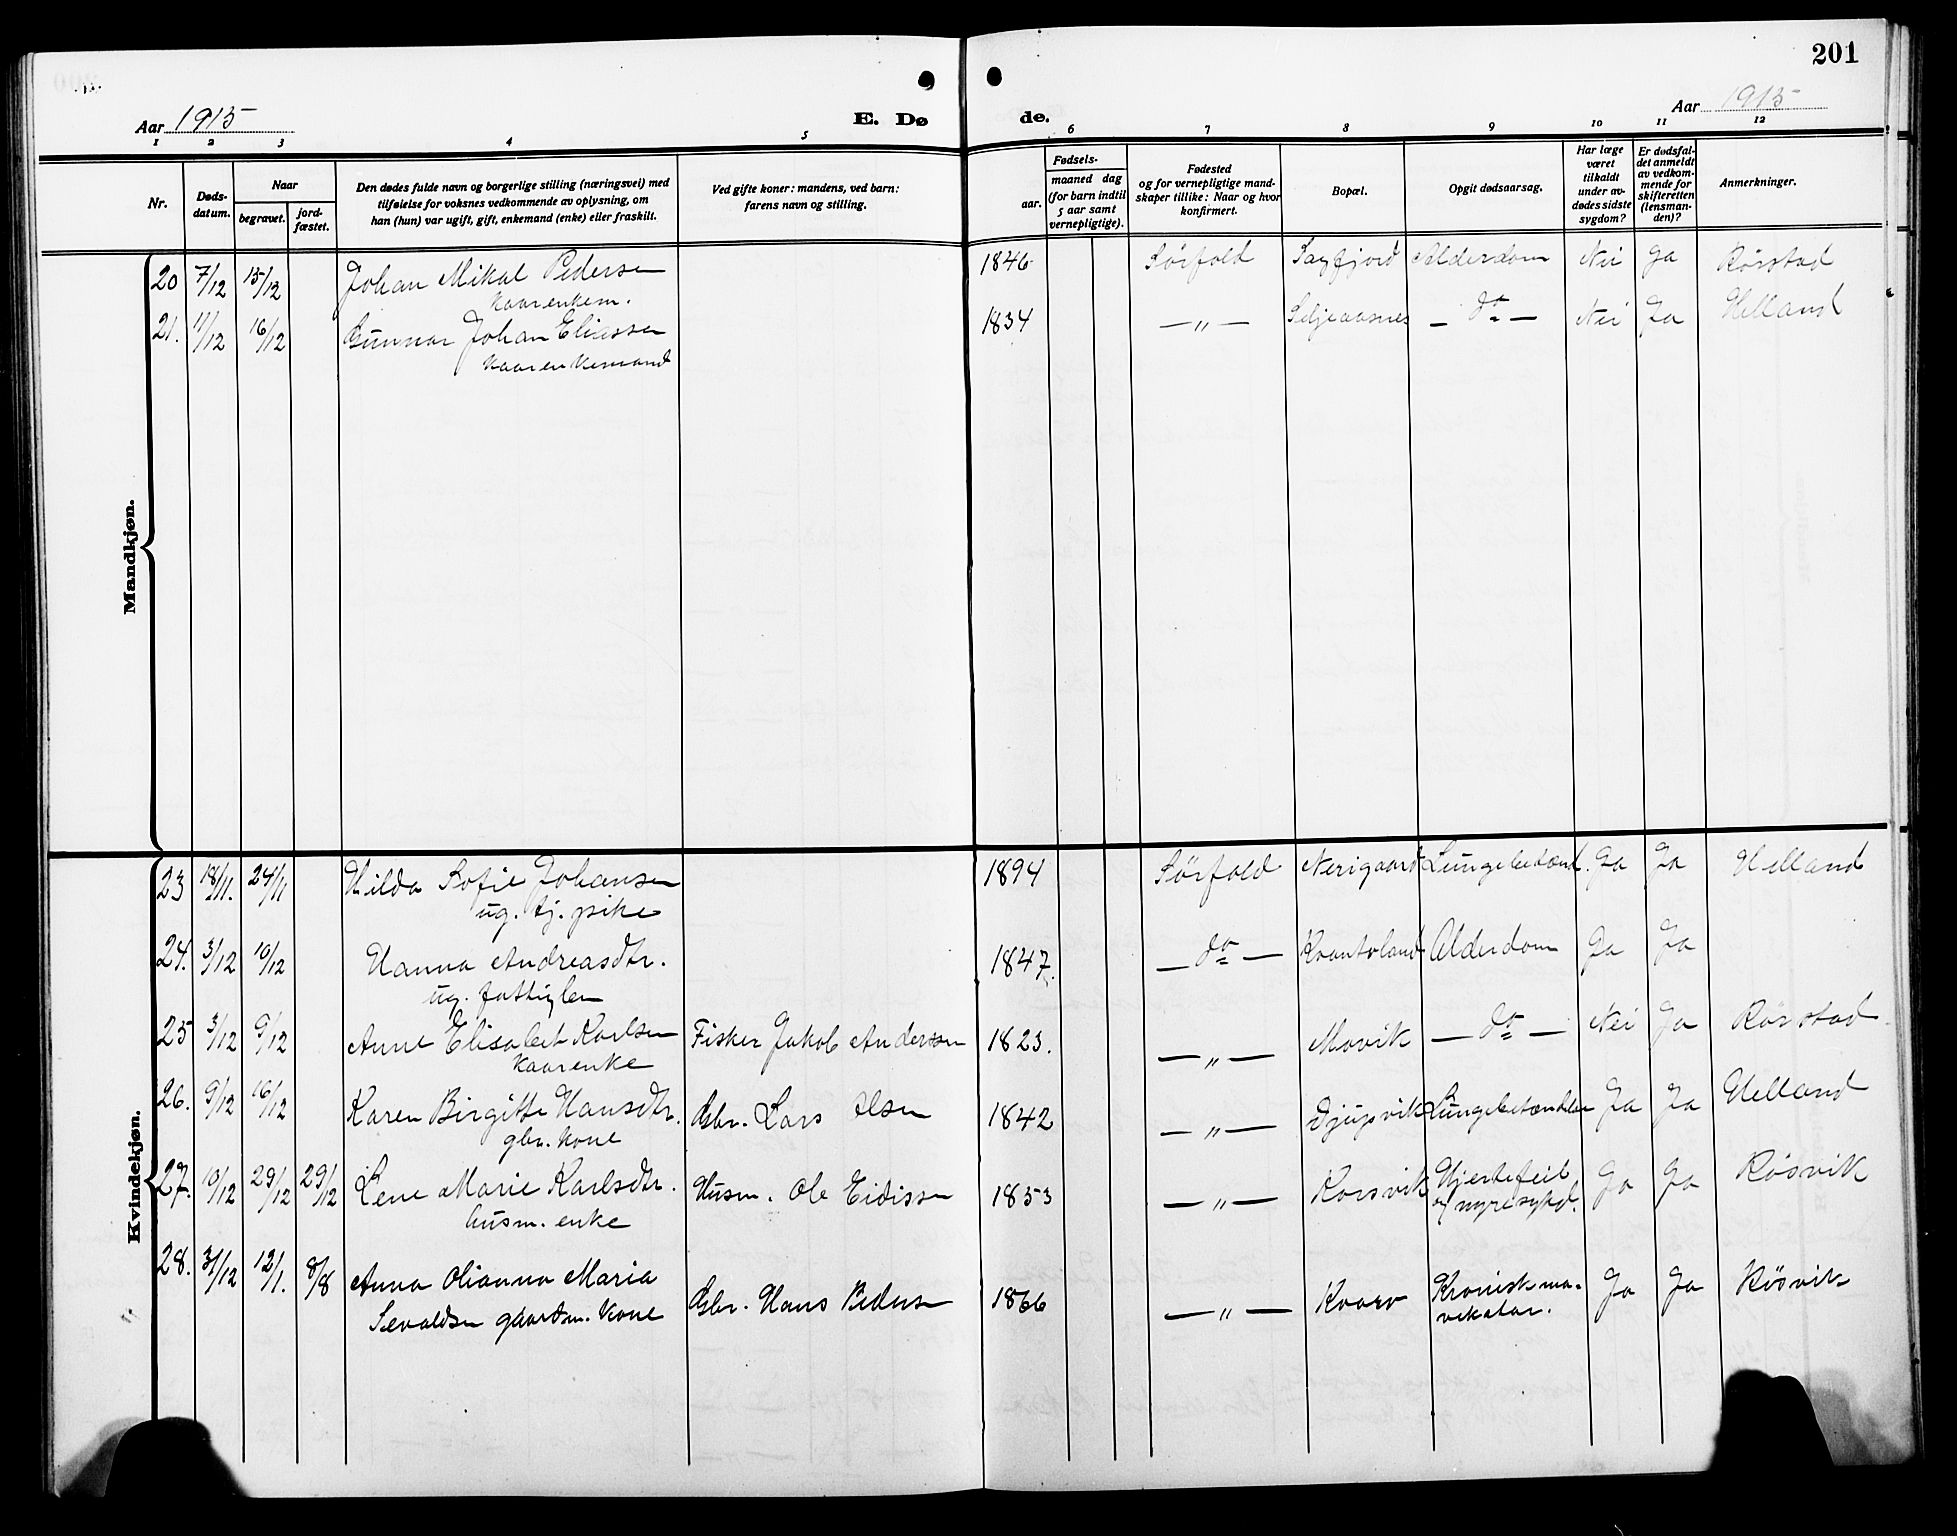 201
Aar 1915
E. Dø
de.
Aar 1915
1 2 3 4 5 6 7 8 9 10 11 12
Nr.
Døds-
datum.
Naar
begravet.
jord-
fæstet.
Den dødes fulde navn og borgerlige stilling (næringsvei) med
tilføielse for voksnes vedkommende av oplysning, om
han (hun) var ugift, gift, enkemand (enke) eller fraskilt.
Ved gifte koner: mandens, ved barn:
farens navn og stilling.
Fødsels-
aar.
maaned dag
(for barn indtil
5 aar samt
vernepligtige).
Fødested
og for vernepligtige mand-
skaper tillike: Naar og hvor
konfirmert.
Bopæl.
Opgit dødsaarsag.
Har læge
været
tilkaldt
under av-
dødes sidste
sygdom?
Er dødsfal-
det anmeldt
av vedkom-
mende for
skifteretten
(lensman-
den)?
Anmerkninger.
Mandkjøn.
20 7/12 15/12 Johan Mikal Pedersen 1846 Sørfold Sagfjord Alderdom Nei Ja Rørstad
kaarenkem.
21. 11/12 16/12 Gunnar Johan Eliassen 1834 —„— Seljeaasnes — do — Nei Ja Helland
kaarenkemand
Kvindekjøn.
23 18/11. 24/11 Hilda Sofie Johansen 1894 Sørfold Nerigaard Lungebetænd. Ja Ja Helland
ug. tj. pike
24. 3/12 10/12 Hanna Andreasdtr. 1847. — do — Kvantoland Alderdom Ja Ja
ug. fattiglem
25 3/12 9/12 Anne Elisabet Karlsen Fisker Jakob Andersen 1823. —„— Movik — do — Nei Ja Rørstad
kaarenke
26. 9/12 16/12 Karen Birgitte Hansdtr. Gbr. Lars Olsen 1842 —„— Djupvik Lungebetændelse Ja Ja Helland
gbr. kone
27. 10/12 29/12 29/12 Lene Marie Karlsdtr. Husm. Ole Eidissen 1853 —„— Korsvik Hjertefeil Ja Ja Røsvik
husm. enke og nyresykd.
28. 31/12 12/1. 8/8 Anna Olianna Maria Gbr. Hans Pedersen 1866 —„— Kvarv Kronisk ma- Ja Ja Røsvik
Sevaldsen gaardm. kone vekatar.